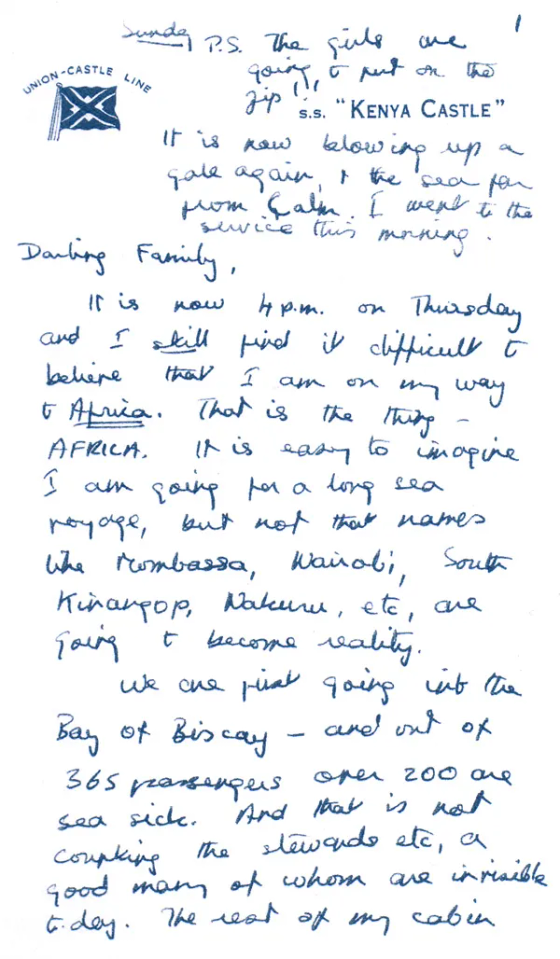 1
Sunday P.S. The girls are
going to put on the
jip!!!
UNION-CASTLE LINE
S.S. "KENYA CASTLE"
It is now blowing up a
gale again, & the sea far
from calm. I went to the
service this morning.
Darling Family,
It is now 4 p.m. on Thursday
and I still find it difficult to
believe that I am on my way
to Africa. That is the thing –
AFRICA. It is easy to imagine
I am going for a long sea
voyage, but not that names
like Mombassa, Nairobi, South
Kinangop, Nakuru, etc, are
going to become reality.
We are just going into the
Bay of Biscay – and out of
365 passengers over 200 are
sea sick. And that is not
counting the stewards etc, a
good many of whom are invisible
to-day. The rest of my cabin